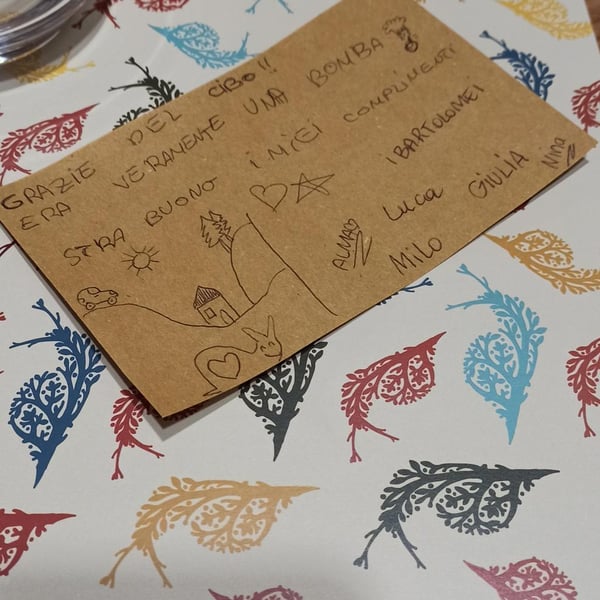 GRAZIE DEL CIBO!!
ERA VERAMENTE UNA BOMBA
STRA BUONO I MIEI COMPLIMENTI
I BARTOLOMEI
ALMA Luca GIULIA Nina
Milo